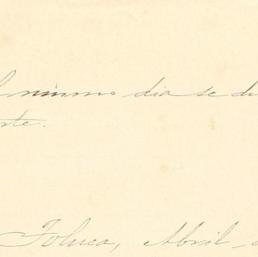 l mismo dia se di
rte.
Toluca, Abril